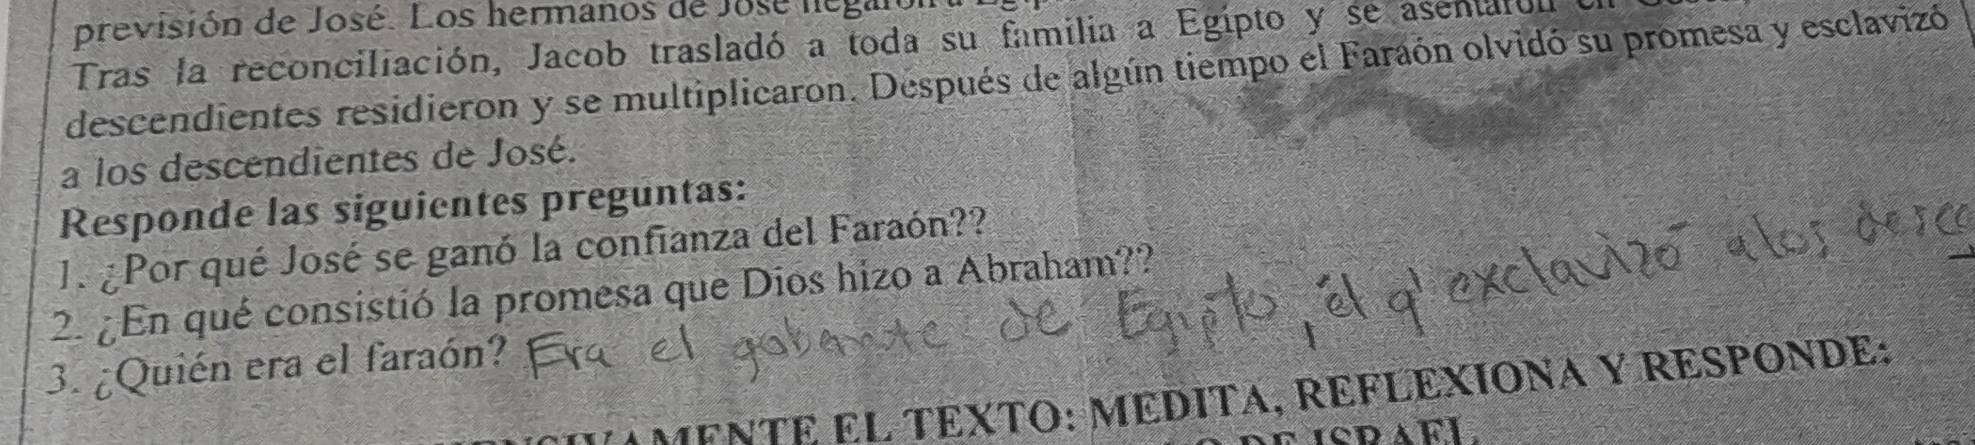 previsión de José. Los hermanos de José llegaron a
Tras la reconciliación, Jacob trasladó a toda su familia a Egipto y se asentaron en
descendientes residieron y se multiplicaron. Después de algún tiempo el Faraón olvidó su promesa y esclavizó
a los descendientes de José.
Responde las siguientes preguntas:
1. ¿Por qué José se ganó la confianza del Faraón??
2. ¿En qué consistió la promesa que Dios hizo a Abraham??
3. ¿Quién era el faraón? Era el gobernante de Egipto, él q' exclavizó a los desce
MENTE EL TEXTO: MEDITA, REFLEXIONA Y RESPONDE:
DE ISRAEL